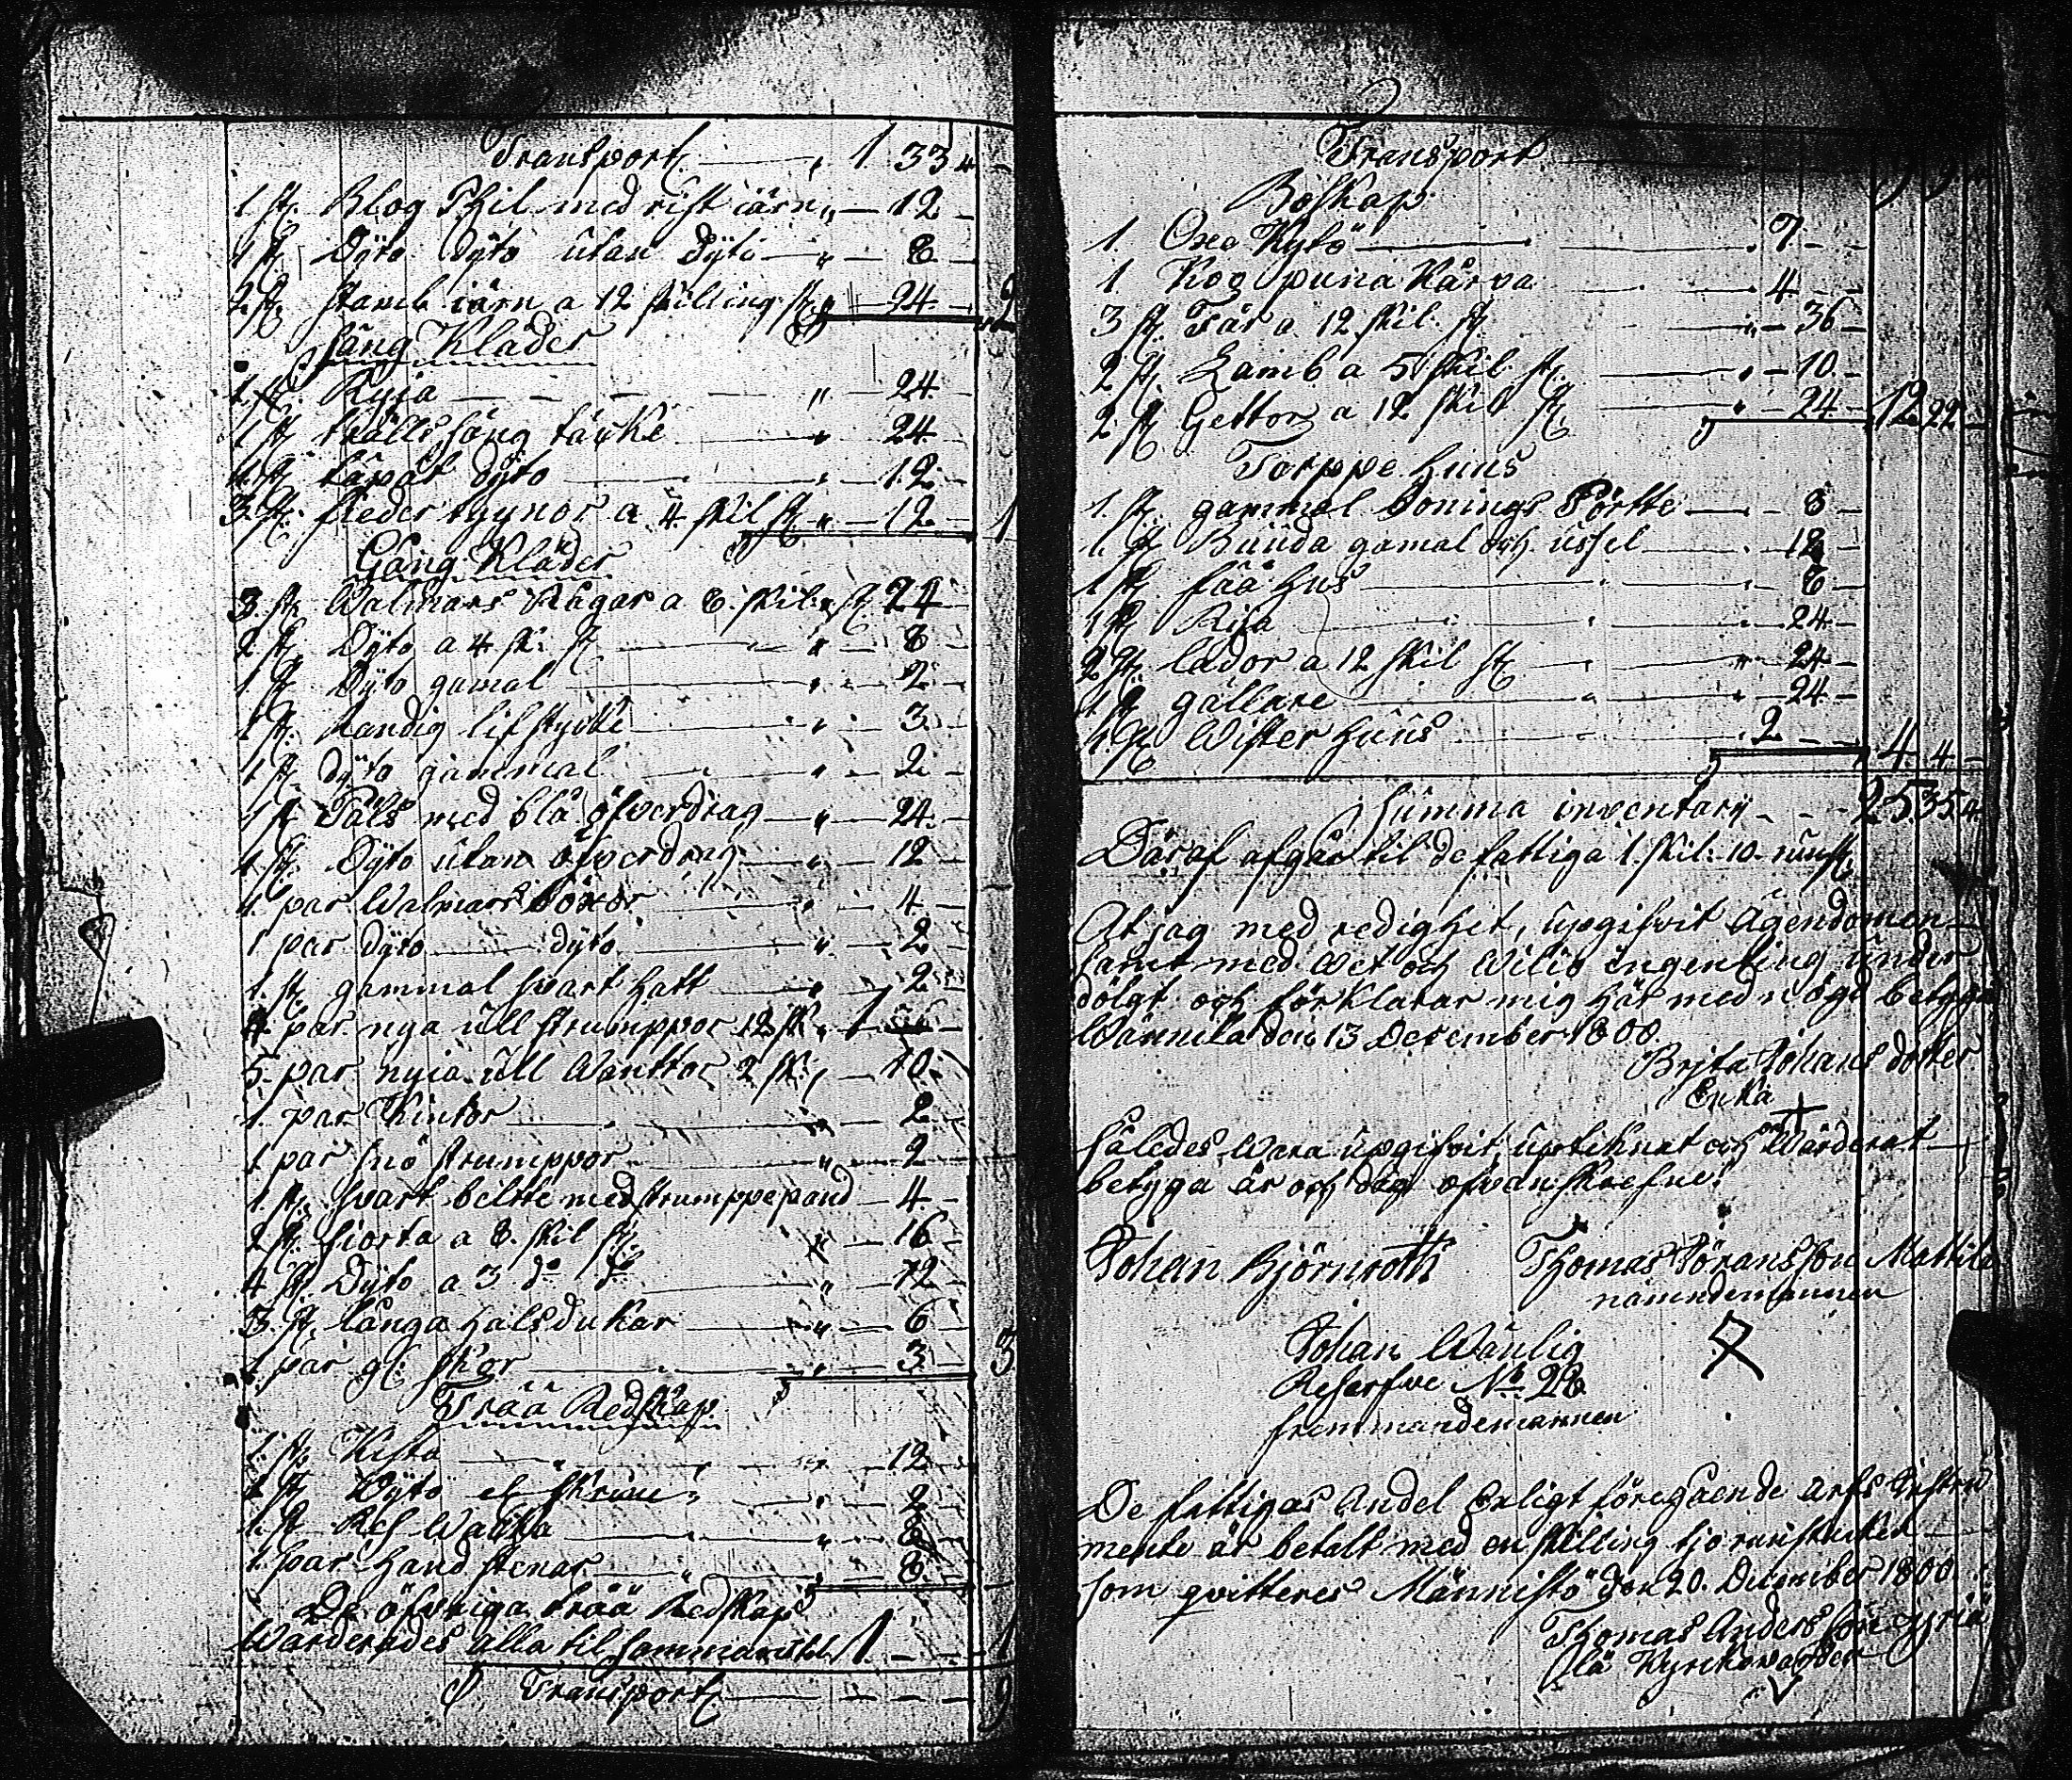 Transport 1. 33 4
1 st. Blog Phil med rist iärn 12
1 st Dÿto dÿto utan Dÿto 8
2 st stamb iärn a 12 skilling st 24 2
Säng Kläder
1 st Ryja 24
1 st trälls säng täcke 24
1 st tåpåt dÿto 12
3 st. fieder tyynor a 4 skil st 12 1
Gång Kläder
3. st Walmars Rågar a 8. skil. st 24
2 st Dÿto a 4 sk: st 8
1 st Dÿto gamal 2
1 st. Randig lifstycke 3
1 st dÿto gammal 2
1 st Päls med blå öfverdrag 24
1 st. Dÿto utan öfverdrag 12
1. par Walmars Böxor 4
1 par dÿto dÿto 2
1. st. gammal svart hatt 2
4 par nya ull strumppor 12 sk 1
5. par nyia ull Wanttor 2 sk. 10
1. par Kintor 2
1 par snö strumppor 2
1. st. svart beltte med strumppepand 4
2 st. siorta a 8. skil st 16
4 st Dÿto a 3 do do 12
3. st. långa halsdukar 6
1 par gl. skor 3 3
Trää Redskap
1. st. Kista 12
1 st Dÿto el skrin 2
1. st Res Wacka 8
1. par hand stenar 8
De öfvriga trää Redskap
Wärderades alla til sammans til 1 1
Transport 9
Transport
Boskap
1. Oxe Kytö 7
1 Koo puna Kårva 4
3 st. Får a 12 skil. st 36
2 st. Lamb a 5 skil. st 10
2 st Gettor a 12 skil st 24 12 22
Torppe huus
1. st. gammal Bonings Pörtte 8
1. st Buuda gamal och ussel 12
1 st fää hus 8
1 st Rija 24
2 st. lador a 12 skil st 24
1 st gällare 24
1. st Wister huus 2 4 4
Summa inventarÿ 25 35 4
Däraf afgår til de fattiga 1. skil. 10. runst
At jag med redighet, upgifvit Ägendomen
samt med Wet och Wilio ingenting under
dölgt och förklarar mig här med nögd betyga
Wännila den 13 December 1800.
Brita Johans dotter
Enka
Således wara upgifvit, uptiknat och Wärderat
betyga år och dag ofvanskrefne.
Johan Björnroth Thomas Göransson Mattila
nämndemannen
Johan Wänlig
Reserfve No 28
fremmandemannen
De fattigas Andel Enligt föregående arfs Instru
mente är betalt med en skilling tjo runstucken
som qvitteres Männistö den 20. December 1800
Thomas Anders son yriä
Kyrckowärder